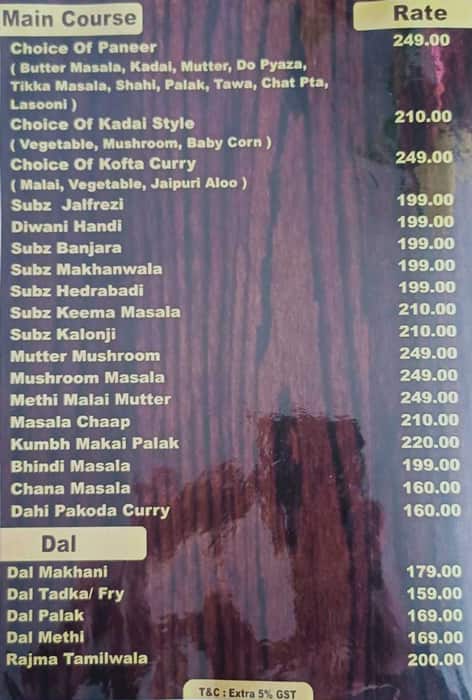 Main Course Rate
Choice Of Paneer 249.00
( Butter Masala, Kadai, Mutter, Do Pyaza,
Tikka Masala, Shahi, Palak, Tawa, Chat Pta,
Lasooni )
Choice Of Kadai Style 210.00
( Vegetable, Mushroom, Baby Corn )
Choice Of Kofta Curry 249.00
( Malai, Vegetable, Jaipuri Aloo )
Subz Jalfrezi 199.00
Diwani Handi 199.00
Subz Banjara 199.00
Subz Makhanwala 199.00
Subz Hedrabadi 199.00
Subz Keema Masala 210.00
Subz Kalonji 210.00
Mutter Mushroom 249.00
Mushroom Masala 249.00
Methi Malai Mutter 249.00
Masala Chaap 210.00
Kumbh Makai Palak 220.00
Bhindi Masala 199.00
Chana Masala 160.00
Dahi Pakoda Curry 160.00
Dal
Dal Makhani 179.00
Dal Tadka/ Fry 159.00
Dal Palak 169.00
Dal Methi 169.00
Rajma Tamilwala 200.00
T&C : Extra 5% GST